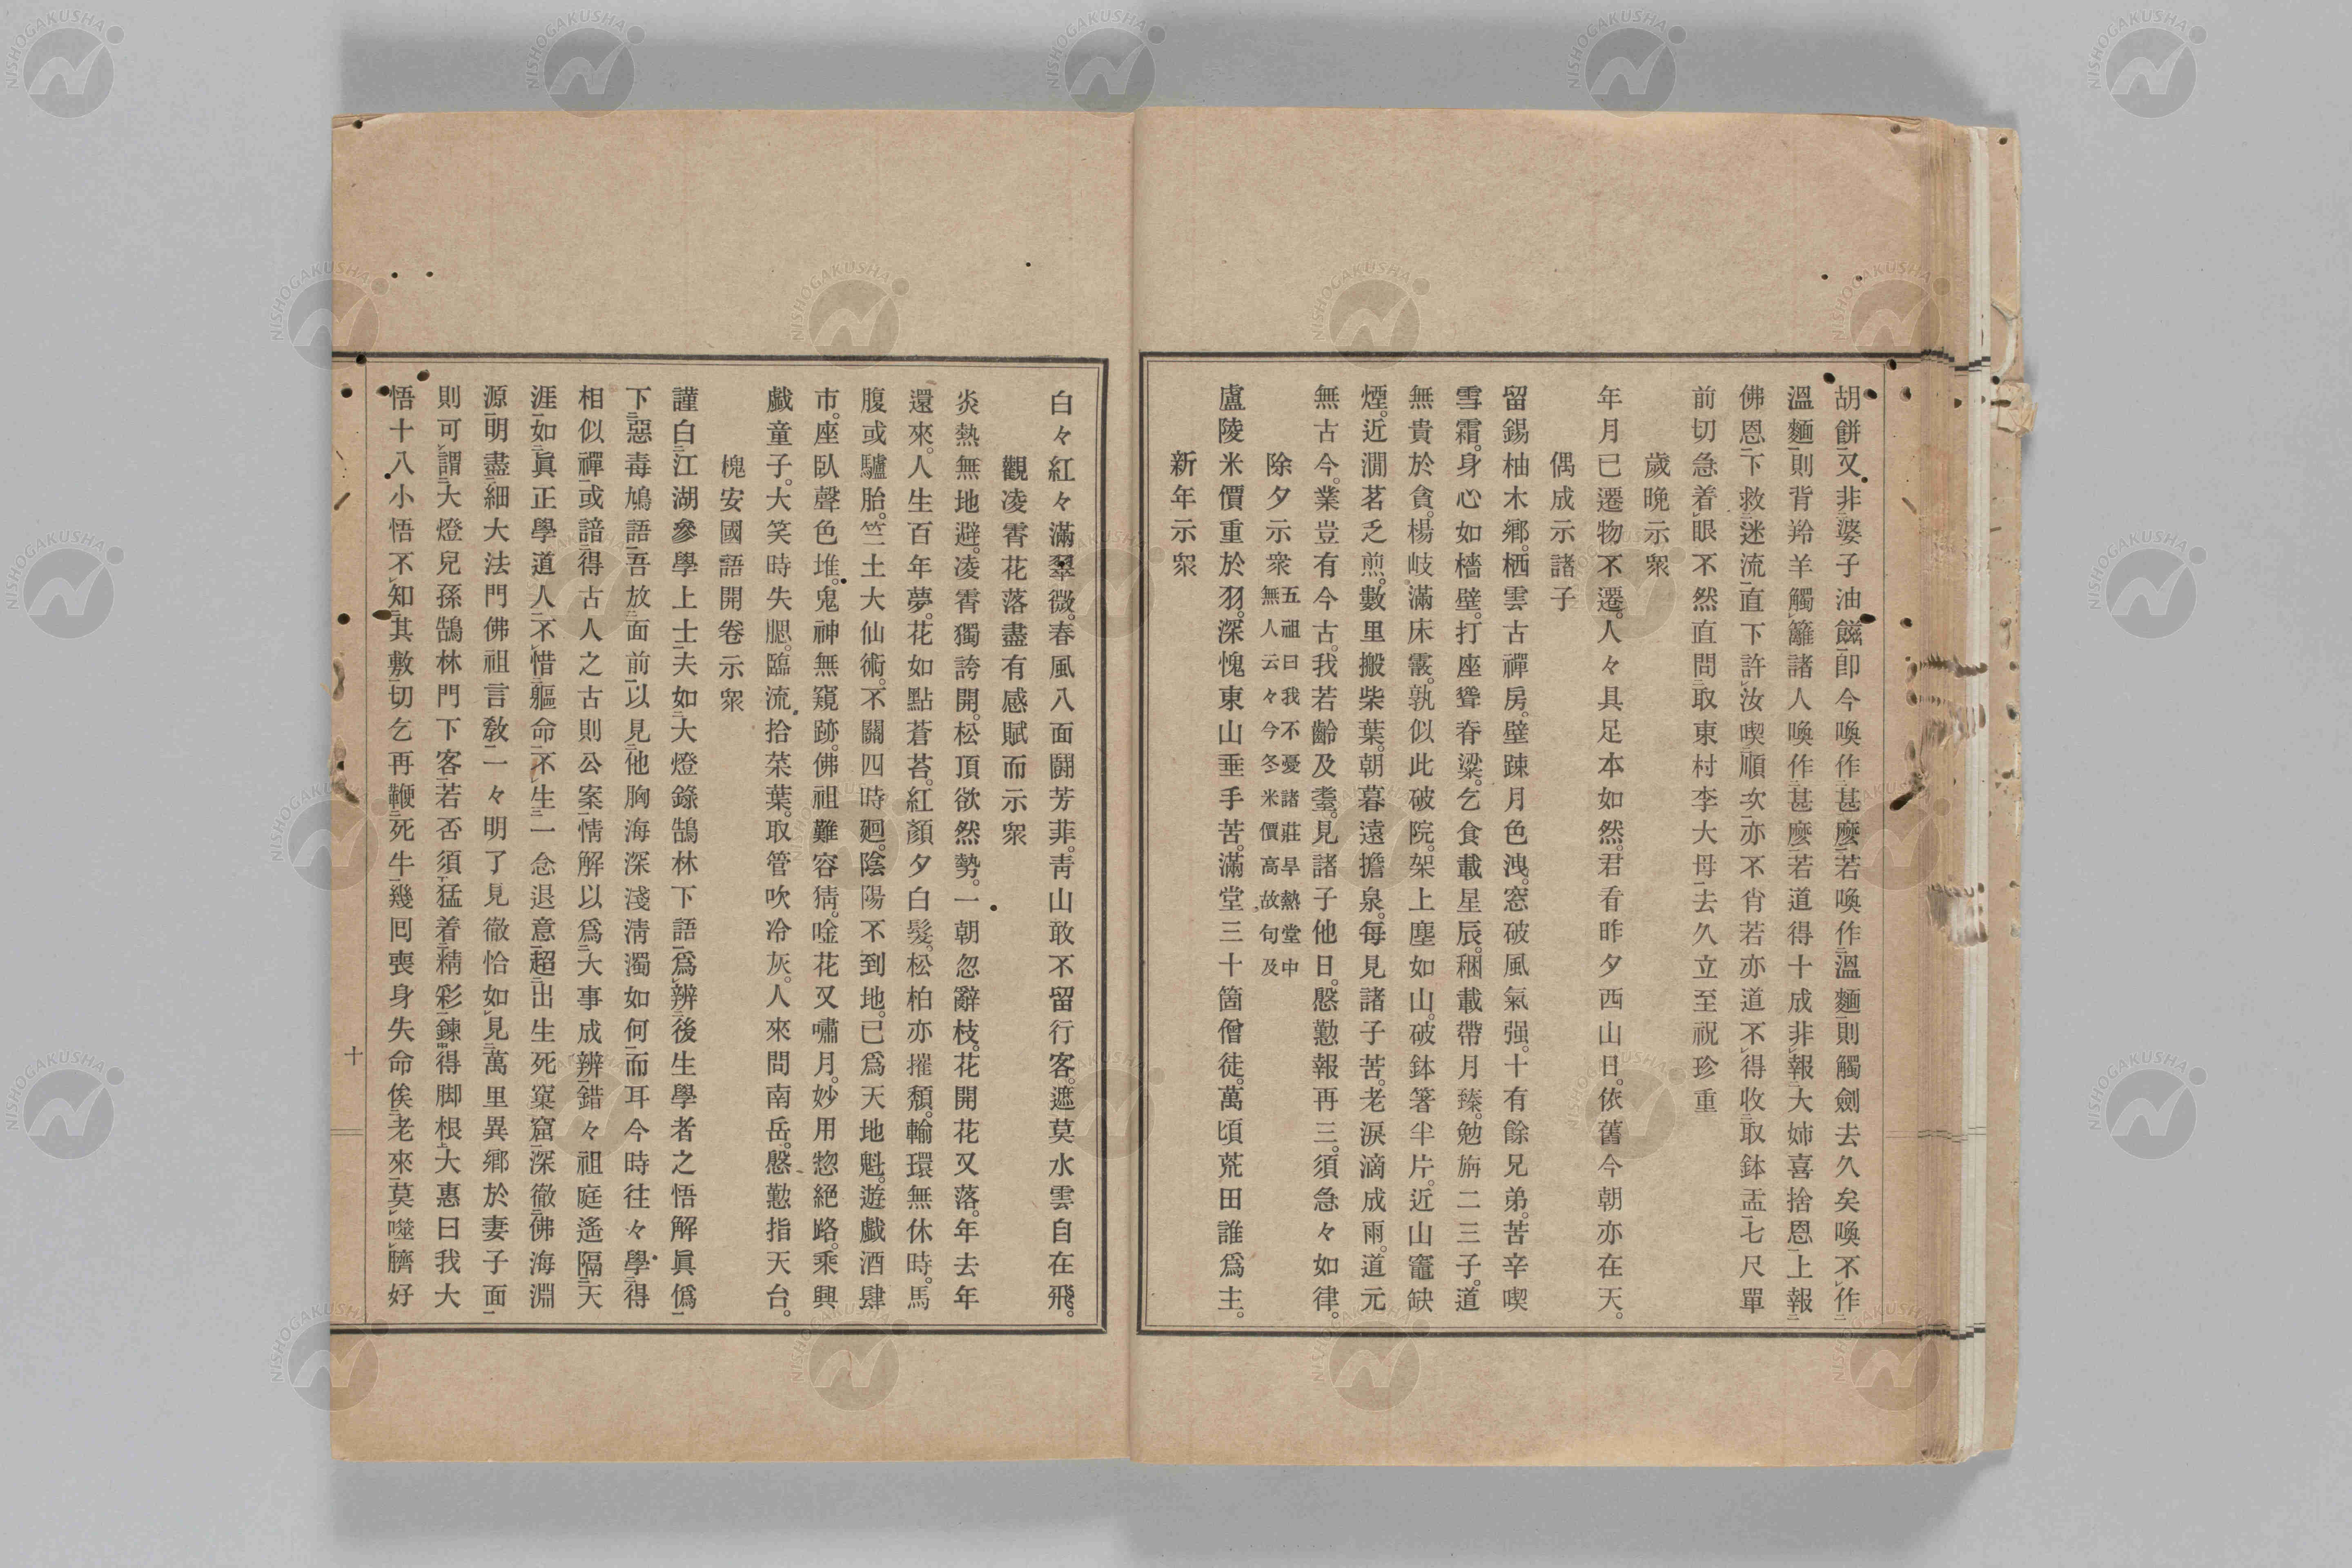 胡餅又非婆子油餈即今喚作甚麽若喚作溫麵則觸劍去久矣喚不作
溫麵則背羚羊觸籬諸人喚作甚麽若道得十成非報大姉喜捨恩上報
佛恩下救迷流直下許汝喫順次亦不肯若亦道不得收取鉢盂七尺單
前切急着眼不然直問取東村李大母去久立至祝珍重
歲晩示衆
年月已遷物不遷。人々具足本如然。君看昨夕西山日。依舊今朝亦在天。
偶成示諸子
留錫柚木鄕。栖雲古禪房。壁踈月色洩。窓破風氣强。十有餘兄弟。苦辛喫
雪霜。身心如檣壁。打座聳脊梁。乞食載星辰。稛載帶月臻。勉旃二三子。道
無貴於貪。楊岐滿床霰。孰似此破院。架上塵如山。破鉢箸半片。近山竈缺
煙。近澗茗乏煎。數里搬柴葉。朝暮遠擔泉。每見諸子苦。老淚滴成雨。道元
無古今。業豈有今古。我若齡及耋。見諸子他日。慇懃報再三。須急々如律。
除夕示衆 五祖曰我不憂諸莊旱熱堂中
無人云々今冬米價高故句及
盧陵米價重於羽。深愧東山垂手苦。滿堂三十箇僧徒。萬頃荒田誰爲主。
新年示衆
白々紅々滿翠微。春風八面鬪芳菲。靑山敢不留行客。遮莫水雲自在飛。
觀凌霄花落盡有感賦而示衆
炎熱無地避。凌霄獨誇開。松頂欲然勢。一朝忽辭枝。花開花又落。年去年
還來。人生百年夢。花如點蒼苔。紅顏夕白髮。松柏亦摧頽。輪環無休時。馬
腹或驢胎。竺土大仙術。不關四時廻。陰陽不到地。已爲天地魁。遊戲酒肆
市。座臥聲色堆。鬼神無窺跡。佛祖難容猜。唫花又嘯月。妙用惣絕路。乘興
戲童子。大笑時失腮。臨流拾菜葉。取管吹冷灰。人來問南岳。慇懃指天台。
槐安國語開卷示衆
謹白江湖參學上士夫如大燈錄鵠林下語爲辨後生學者之悟解眞僞
下惡毒鴆語吾放面前以見他胸海深淺淸濁如何而耳今時往々學得
相似禪或諳得古人之古則公案情解以爲大事成辨錯々祖庭遙隔天
涯如眞正學道人不惜軀命不生一念退意超出生死窠窟深徹佛海淵
源明盡細大法門佛祖言敎一々明了見徹恰如見萬里異鄕於妻子面
則可謂大燈兒孫鵠林門下客若否須猛着精彩鍊得脚根大惠曰我大
悟十八小悟不知其敷切乞再鞭死牛幾囘喪身失命俟老來莫噬臍好
十